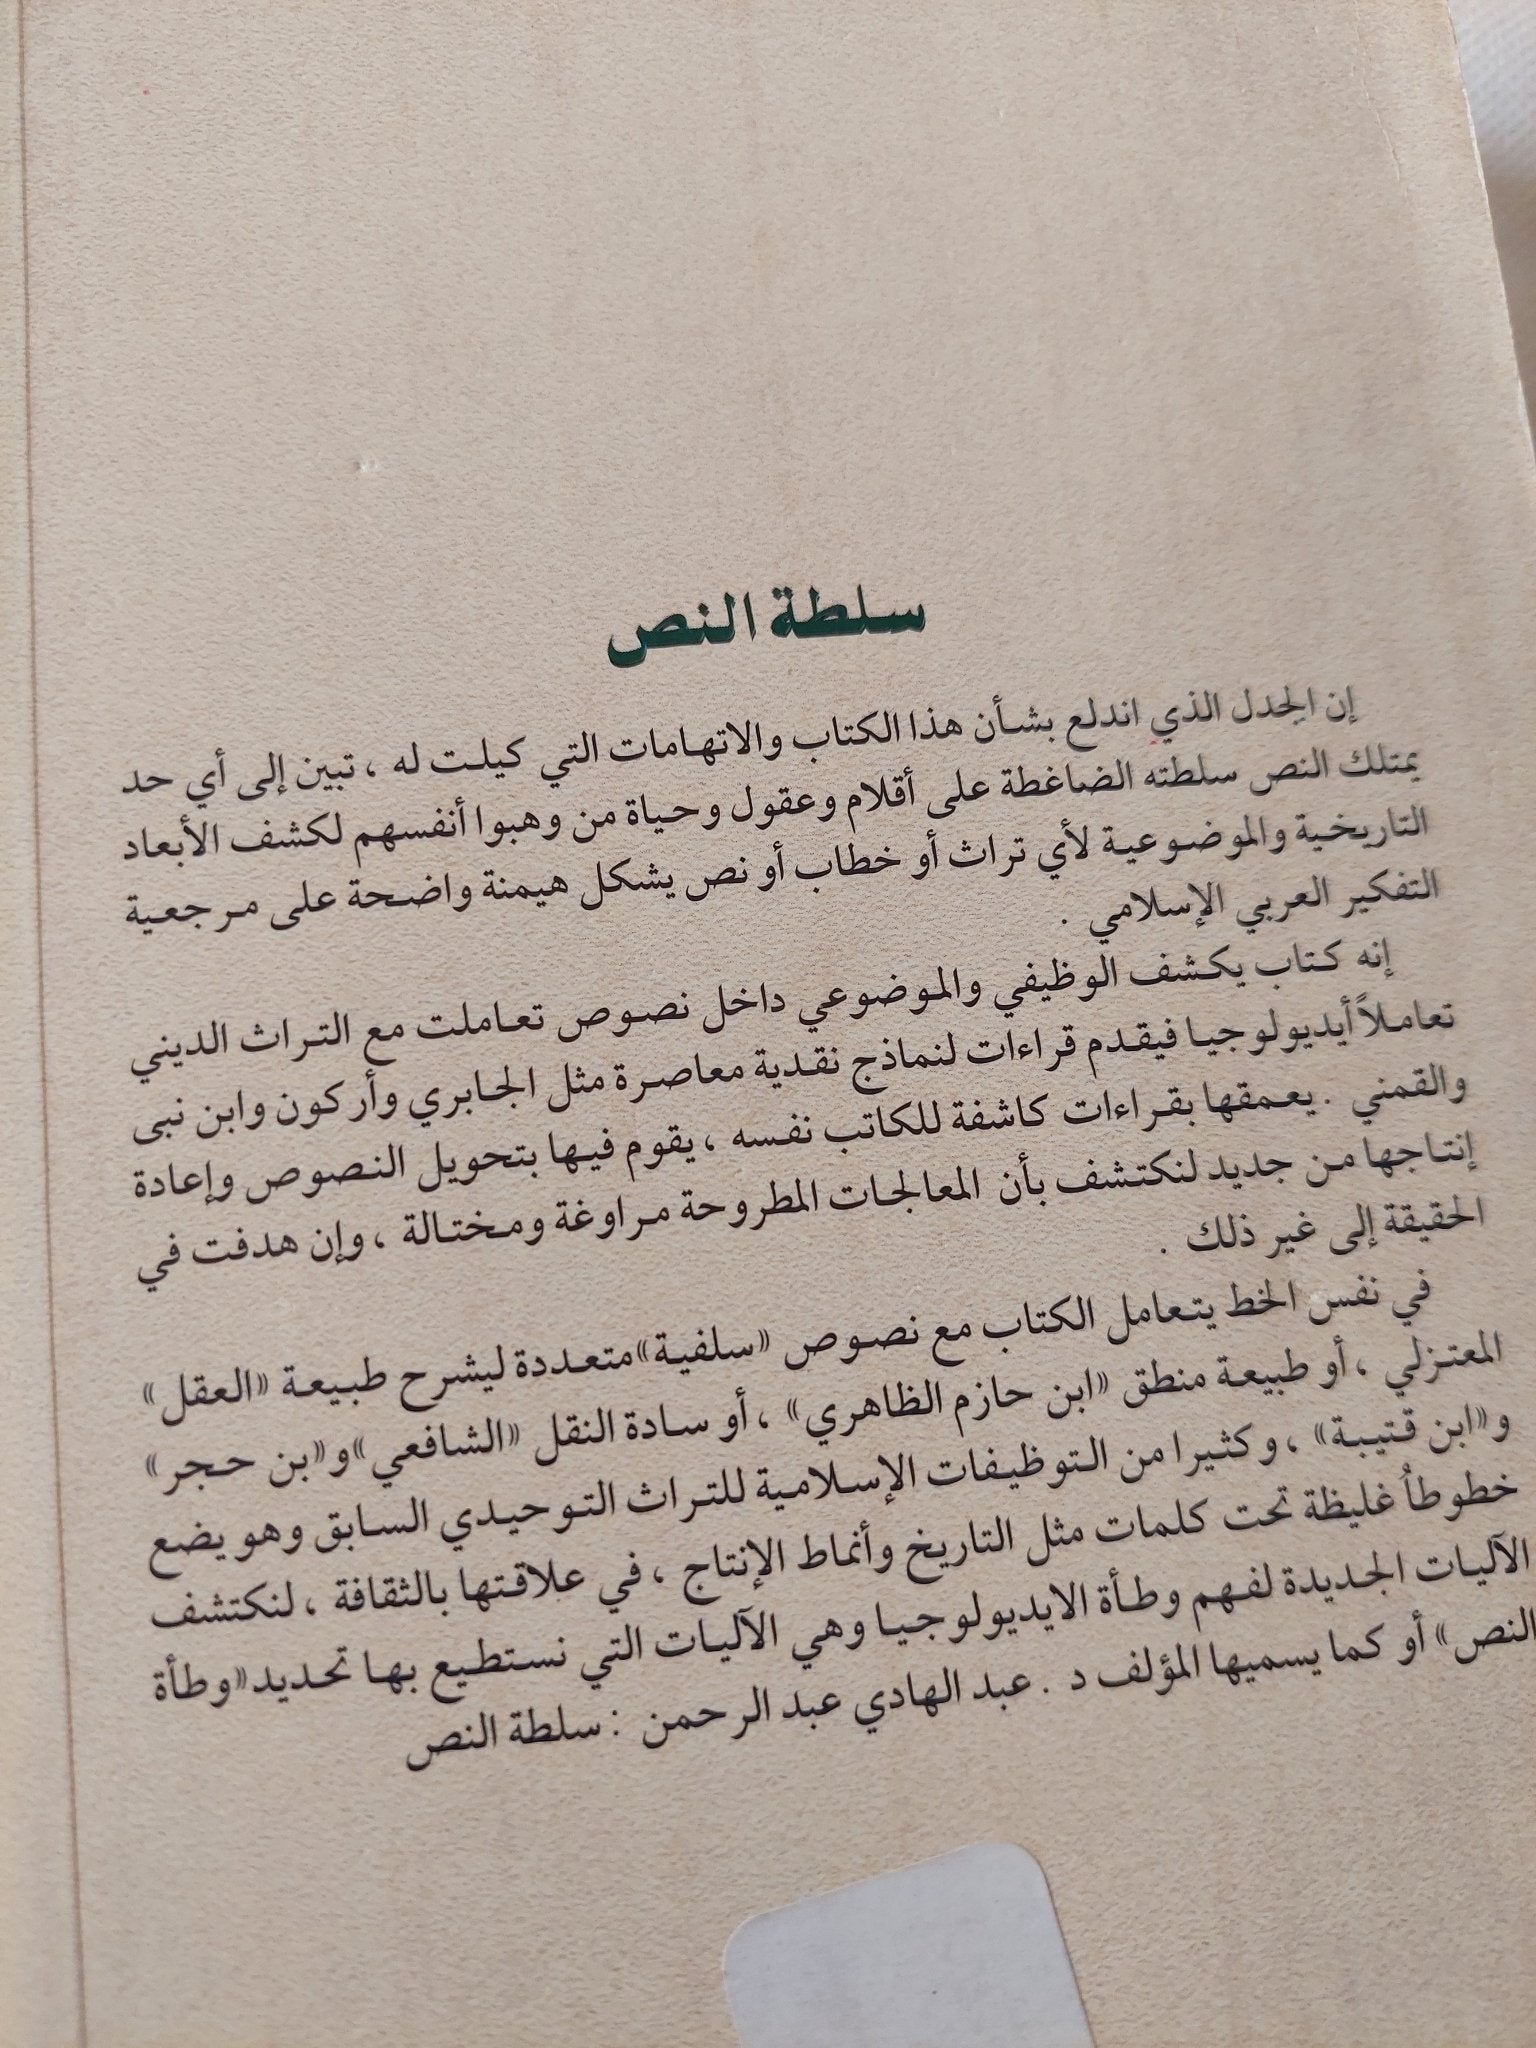 سلطة النص
إن الجدل الذي اندلع بشأن هذا الكتاب والاتهامات التي كيلت له ، تبين إلى أي حد
يمتلك النص سلطته الضاغطة على أقلام وعقول وحياة من وهبوا أنفسهم لكشف الأبعاد
التاريخية والموضوعية لأي تراث أو خطاب أو نص يشكل هيمنة واضحة على مرجعية
التفكير العربي الإسلامي .
إنه كتاب يكشف الوظيفي والموضوعي داخل نصوص تعاملت مع التراث الديني
تعاملاً أيديولوجيا فيقدم قراءات لنماذج نقدية معاصرة مثل الجابري وأركون وابن نبى
والقمني . يعمقها بقراءات كاشفة للكاتب نفسه ، يقوم فيها بتحويل النصوص وإعادة
إنتاجها من جديد لنكتشف بأن المعالجات المطروحة مراوغة ومختالة ، وإن هدفت في
الحقيقة إلى غير ذلك .
في نفس الخط يتعامل الكتاب مع نصوص «سلفية» متعددة ليشرح طبيعة «العقل»
المعتزلي ، أو طبيعة منطق «ابن حازم الظاهري» ، أو سادة النقل «الشافعي» و«بن حجر»
و«ابن قتيبة» ، وكثيرا من التوظيفات الإسلامية للتراث التوحيدي السابق وهو يضع
خطوطاً غليظة تحت كلمات مثل التاريخ وأنماط الإنتاج ، في علاقتها بالثقافة ، لنكتشف
الآليات الجديدة لفهم وطأة الايديولوجيا وهي الآليات التي نستطيع بها تحديد «وطأة
النص» أو كما يسميها المؤلف د . عبد الهادي عبد الرحمن : سلطة النص